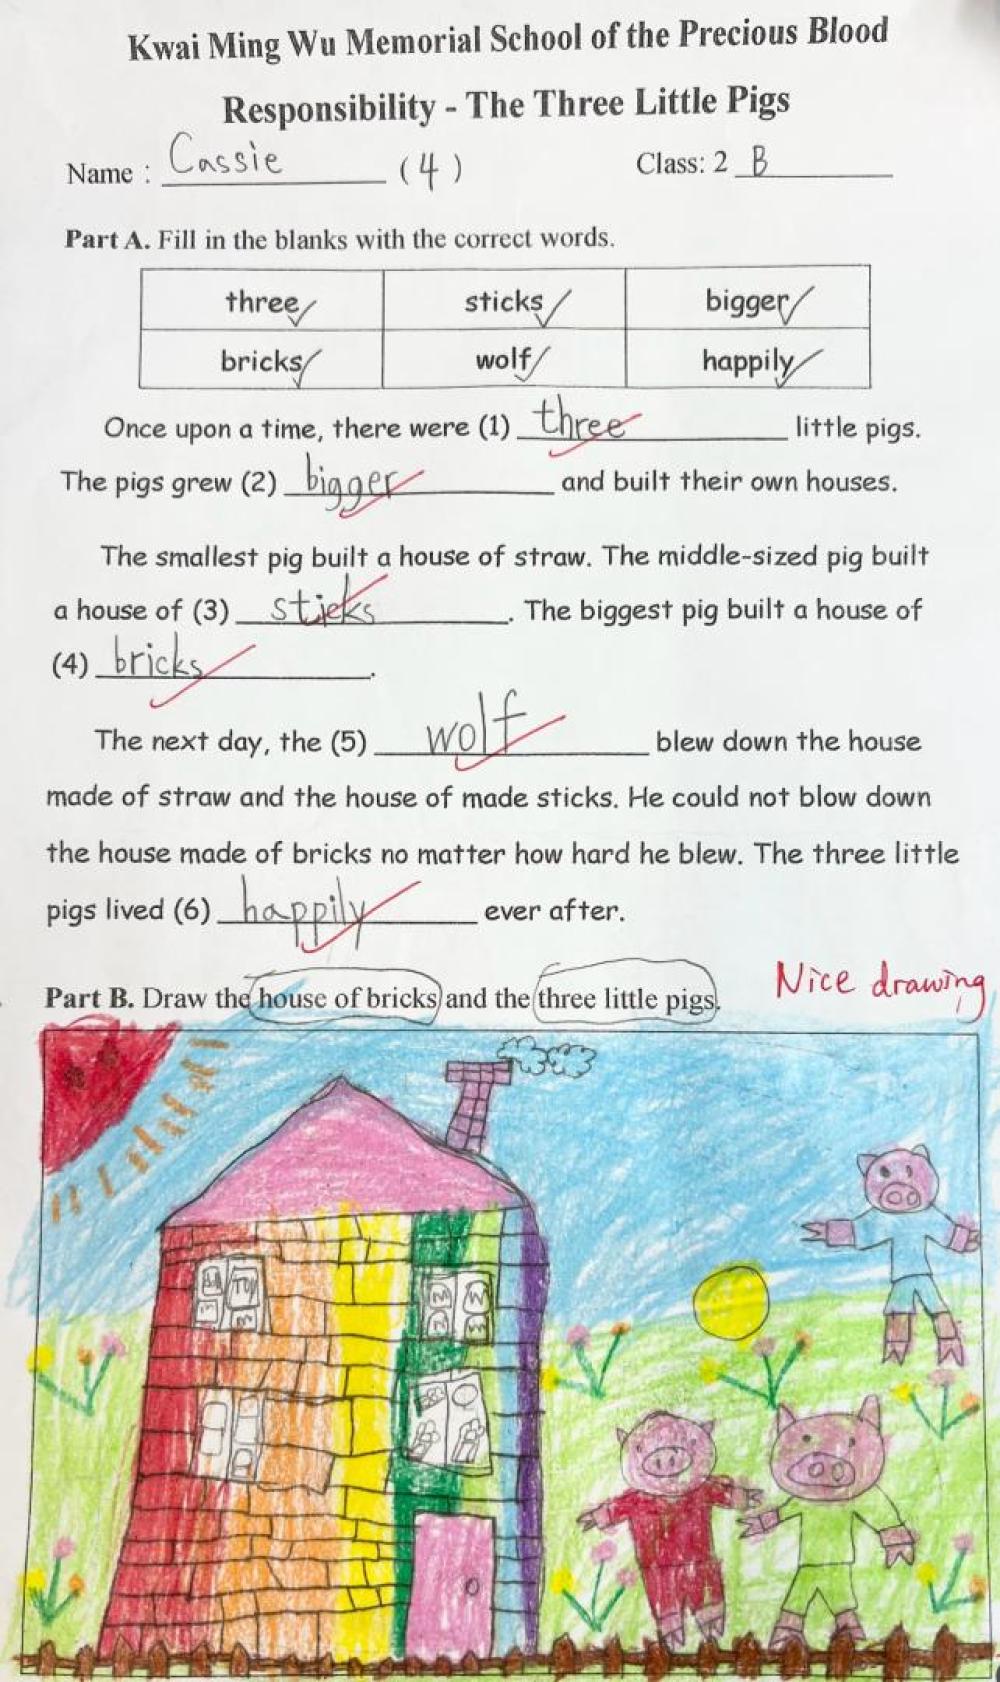 Kwai Ming Wu Memorial School of the Precious Blood
Responsibility - The Three Little Pigs
Name : Cassie (4) Class: 2 B
Part A. Fill in the blanks with the correct words.
three sticks bigger
bricks wolf happily
Once upon a time, there were (1) three little pigs.
The pigs grew (2) bigger and built their own houses.
The smallest pig built a house of straw. The middle-sized pig built
a house of (3) sticks. The biggest pig built a house of
(4) bricks.
The next day, the (5) wolf blew down the house
made of straw and the house of made sticks. He could not blow down
the house made of bricks no matter how hard he blew. The three little
pigs lived (6) happily ever after.
Nice drawing
Part B. Draw the house of bricks and the three little pigs.